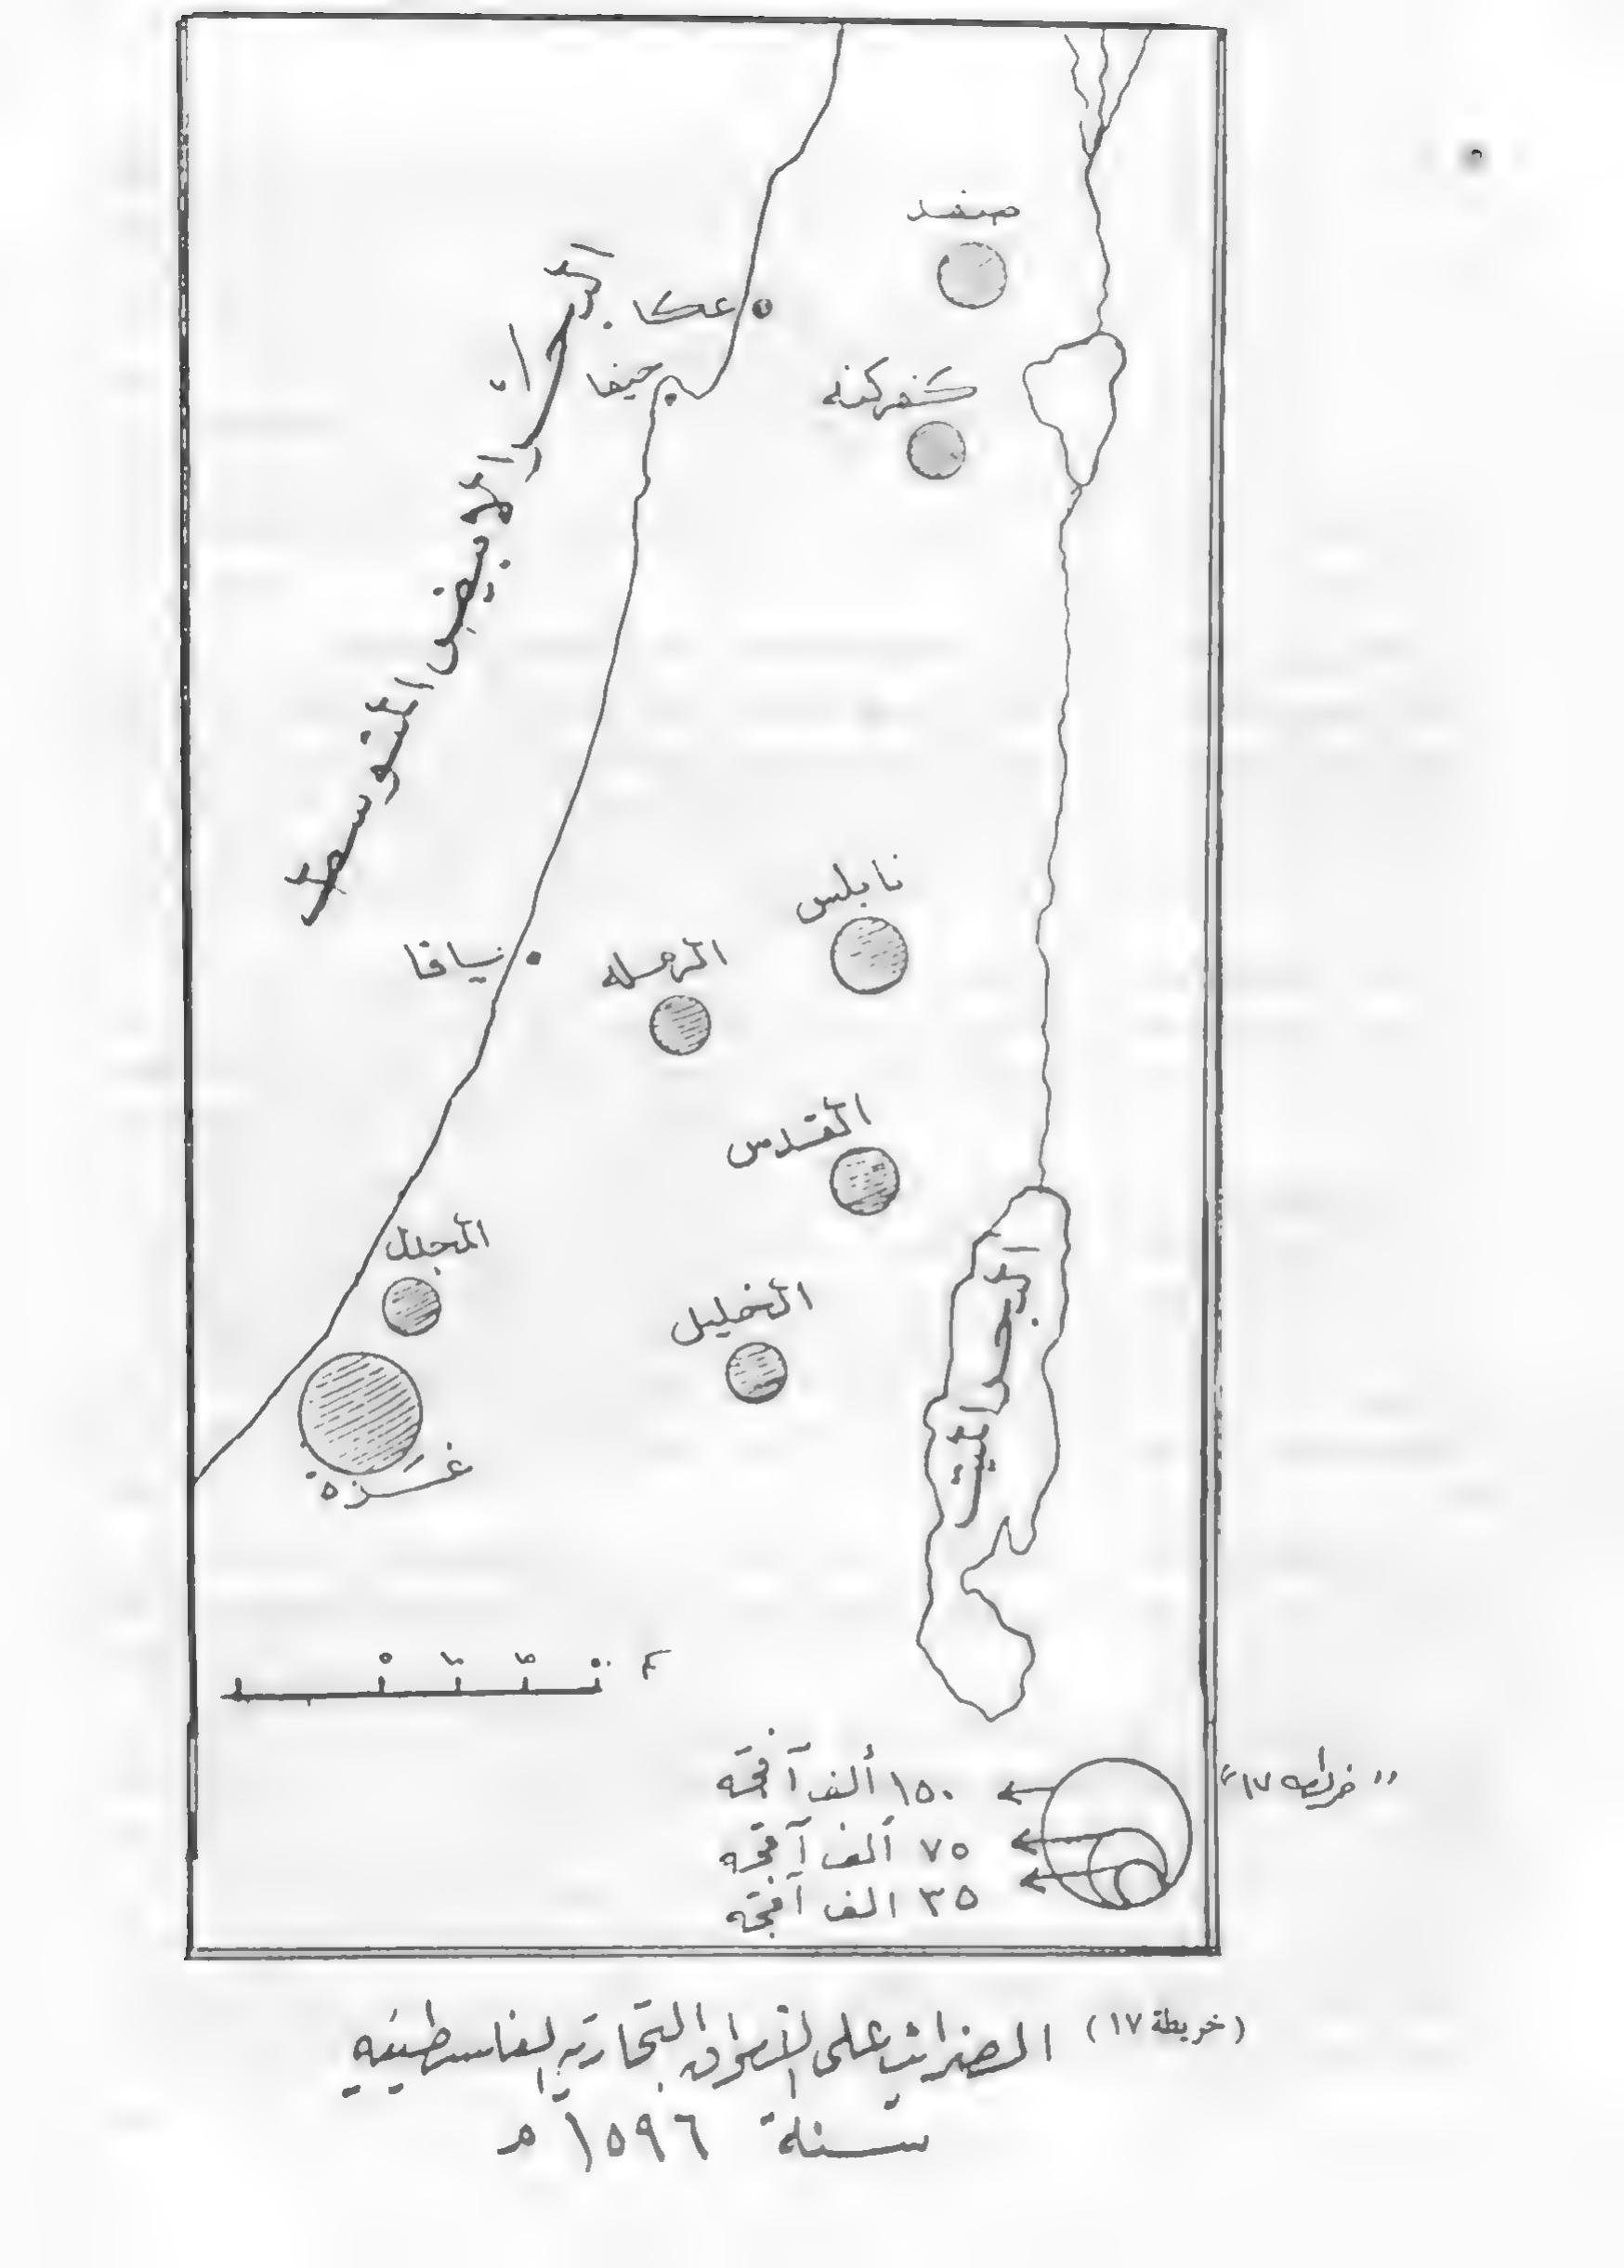 صفد
عكا
حيفا
كفركنه
البحر الابيض المتوسط
نابلس
يافا
الرمله
القدس
المجدل
الخليل
غزة
البحر الميت
١٥٠ ألف آقجه
٧٥ ألف آقجه
٣٥ الف آقجه
" خريطه ١٧ "
(خريطة ١٧) الضرائب على الأسواق التجارية الفلسطينيه
سنة ١٥٩٦ م